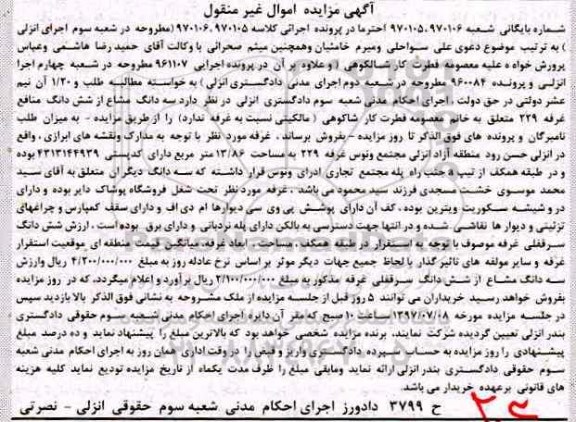 آگهی مزایده اموال غیر منقول
شماره بایگانی شعبه ۹۷۰۱۰۶، ۹۷۰۱۰۵ احتراما در پرونده اجرائی کلاسه ۹۷۰۱۰۵، ۹۷۰۱۰۶ (مطروحه در شعبه سوم اجرای انزلی
) به ترتیب موضوع دعوی علی سواحلی ومیرم خامنیان وهمچنین میثم صحرائی با وکالت آقای حمید رضا هاشمی وعباس
پرورش خواه علیه معصومه فطرت کار شالکوهی (و علاوه بر آن در پرونده اجرایی ۹۶۱۱۰۷ مطروحه در شعبه چهارم اجرا
انزلی و پرونده ۹۶۰۰۸۴ مطروحه در شعبه دوم اجرای مدنی دادگستری انزلی) به خواسته مطالبه طلب و ۱/۲۰ آن نیم
عشر دولتی در حق دولت، اجرای احکام مدنی شعبه سوم دادگستری انزلی در نظر دارد سه دانگ مشاع از شش دانگ منافع
غرفه ۲۲۹ متعلق به خانم معصومه فطرت کار شاکوهی (مالکیتی نسبت به غرفه ندارد) را از طریق مزایده - به میزان طلب
نامبرگان و پرونده های فوق الذکر تا روز مزایده - بفروش برساند، غرفه مورد نظر با توجه به مدارک ونقشه های ابرازی، واقع
در انزلی حسن رود منطقه آزاد انزلی مجتمع ونوس غرفه ۲۲۹ به مساحت ۱۳/۸۶ متر مربع دارای کدپستی ۴۳۱۳۱۴۴۹۳۹ بوده
و در طبقه همکف از تیپ و جنب راه پله مجتمع تجاری اداری ونوس قرار داشته که سه دانگ دیگر آن متعلق به آقای سید
محمد موسوی خشت مسجدی فرزند سید محمود می باشد. غرفه مورد نظر تحت شغل فروشگاه پوشاک دایر بوده و دارای
در و شیشه سکوریت ویترین بوده، کف آن دارای پوشش پی وی سی دیوارها ام دی اف و دارای سقف کمپارس و چراغهای
تزئینی و دیوار ها نقاشی شده و در انتها جهت دسترسی به بالکن دارای پله نردبانی و دارای برق بوده است، ارزش شش دانگ
سرقفلی غرفه موصوف با توجه به استقرار در طبقه همکف، مساحت، ابعاد غرفه، میانگین قیمت منطقه ای موقعیت استقرار
غرفه و سایر مولفه های تاثیر گذار با لحاظ جمیع جهات دیگر موثر بر اساس نرخ عادله روز به مبلغ ۴/۲۰۰/۰۰۰/۰۰۰ ریال وارزش
سه دانگ مشاع از شش دانگ سرقفلی غرفه مذکور به مبلغ ۲/۱۰۰/۰۰۰/۰۰۰ ریال برآورد و اعلام میگردد، که در روز مزایده
بفروش خواهد رسید خریداران می توانند ۵ روز قبل از جلسه مزایده از ملک مشروحه به نشانی فوق الذکر بالا بازدید سپس
در جلسه مزایده مورخه ۱۳۹۷/۰۷/۰۸ ساعت ۱۰ صبح که مقر آن دایره اجرای احکام مدنی شعبه سوم حقوقی دادگستری
بندر انزلی تعیین گردیده شرکت نمایند. برنده مزایده شخصی خواهد بود که بالاترین مبلغ را پیشنهاد نماید و ده درصد مبلغ
پیشنهادی را روز مزایده به حساب سپرده دادگستری واریز و فیش را در وقت اداری همان روز به اجرای احکام مدنی شعبه
سوم حقوقی دادگستری بندر انزلی ارائه نماید ومابقی مبلغ را ظرف مدت یکماه از تاریخ مزایده تودیع نماید کلیه هزینه
های قانونی برعهده خریدار می باشد.
ح ۳۷۹۹ دادورز اجرای احکام مدنی شعبه سوم حقوقی انزلی - نصرتی